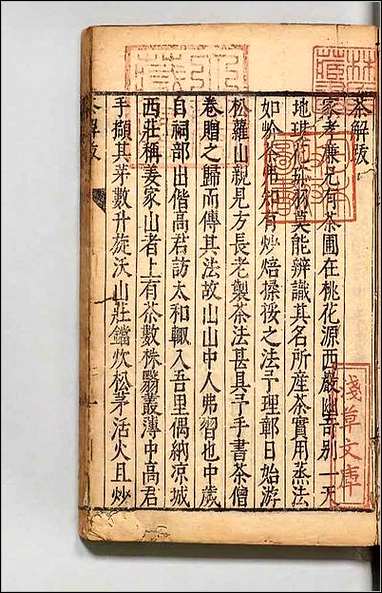 茶解跋
家孝廉兄有茶圃在桃花源西巖幽奇別一天
地琪花珍羽莫能辨識其名所産茶實用蒸法
如岕茶弗知有炒焙揉挼之法予理鄣日始游
松蘿山親見方長老製茶法甚具予手書茶僧
卷贈之歸而傳其法故出山中人弗習也中歲
自祠部出偕高君訪太和輒入吾里偶納凉城
西莊稱姜家山者上有茶數株翳叢薄中高君
手擷其芽數升旋沃山莊鐺炊松茅活火且炒
茶解跋
淺草文庫